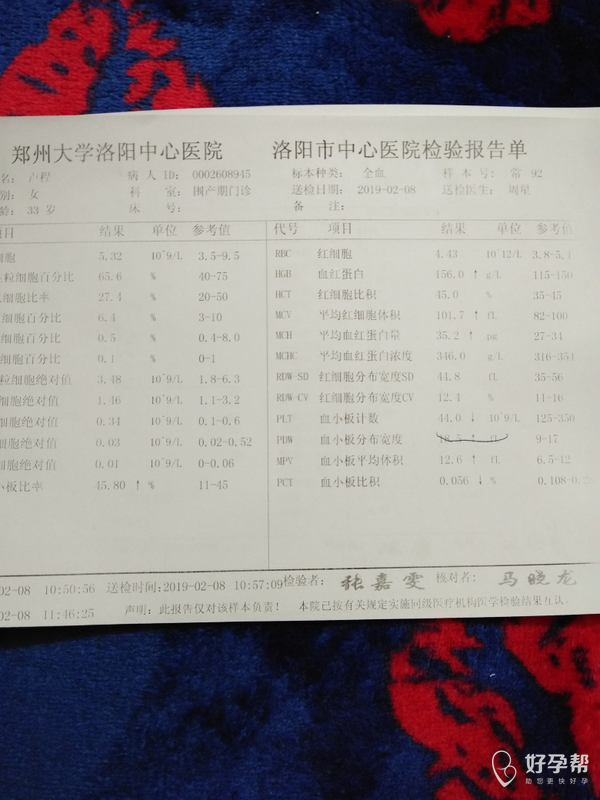 郑州大学洛阳中心医院 洛阳市中心医院检验报告单
名: 卢程 病 人 ID: 0002608945 标本种类: 全血 样 本 号: 常 92
别: 女 科 室: 围产期门诊 送检日期: 2019-02-08 送检医生: 周星
龄: 33 岁 床 号: 备 注:
项目 结果 单位 参考值 代号 项目 结果 单位 参考值
细胞 5.32 10^9/L 3.5-9.5 RBC 红细胞 4.43 10^12/L 3.8-5.1
性粒细胞百分比 65.6 % 40-75 HGB 血红蛋白 156.0 ↑ g/L 115-150
细胞比率 27.4 % 20-50 HCT 红细胞比积 45.0 % 35-45
细胞百分比 6.4 % 3-10 MCV 平均红细胞体积 101.7 ↑ fL 82-100
细胞百分比 0.5 % 0.4-8.0 MCH 平均血红蛋白量 35.2 ↑ pg 27-34
细胞百分比 0.1 % 0-1 MCHC 平均血红蛋白浓度 346.0 g/L 316-354
粒细胞绝对值 3.48 10^9/L 1.8-6.3 RDW-SD 红细胞分布宽度SD 44.8 fL 35-56
细胞绝对值 1.46 10^9/L 1.1-3.2 RDW-CV 红细胞分布宽度CV 12.4 % 11-16
细胞绝对值 0.34 10^9/L 0.1-0.6 PLT 血小板计数 44.0 ↓ 10^9/L 125-350
细胞绝对值 0.03 10^9/L 0.02-0.52 PDW 血小板分布宽度 ↑ fL 9-17
细胞绝对值 0.01 10^9/L 0-0.06 MPV 血小板平均体积 12.6 ↑ fL 6.5-12
小板比率 45.80 ↑ % 11-45 PCT 血小板比积 0.056 ↓ % 0.108-0.28
02-08 10:50:56 送检时间:2019-02-08 10:57:09 检验者: 张嘉雯 核对者: 马晓龙
02-08 11:46:25 声明: 此报告仅对该样本负责! 本院已按有关规定实施同级医疗机构医学检验结果互认。
好孕帮
助您更快好孕